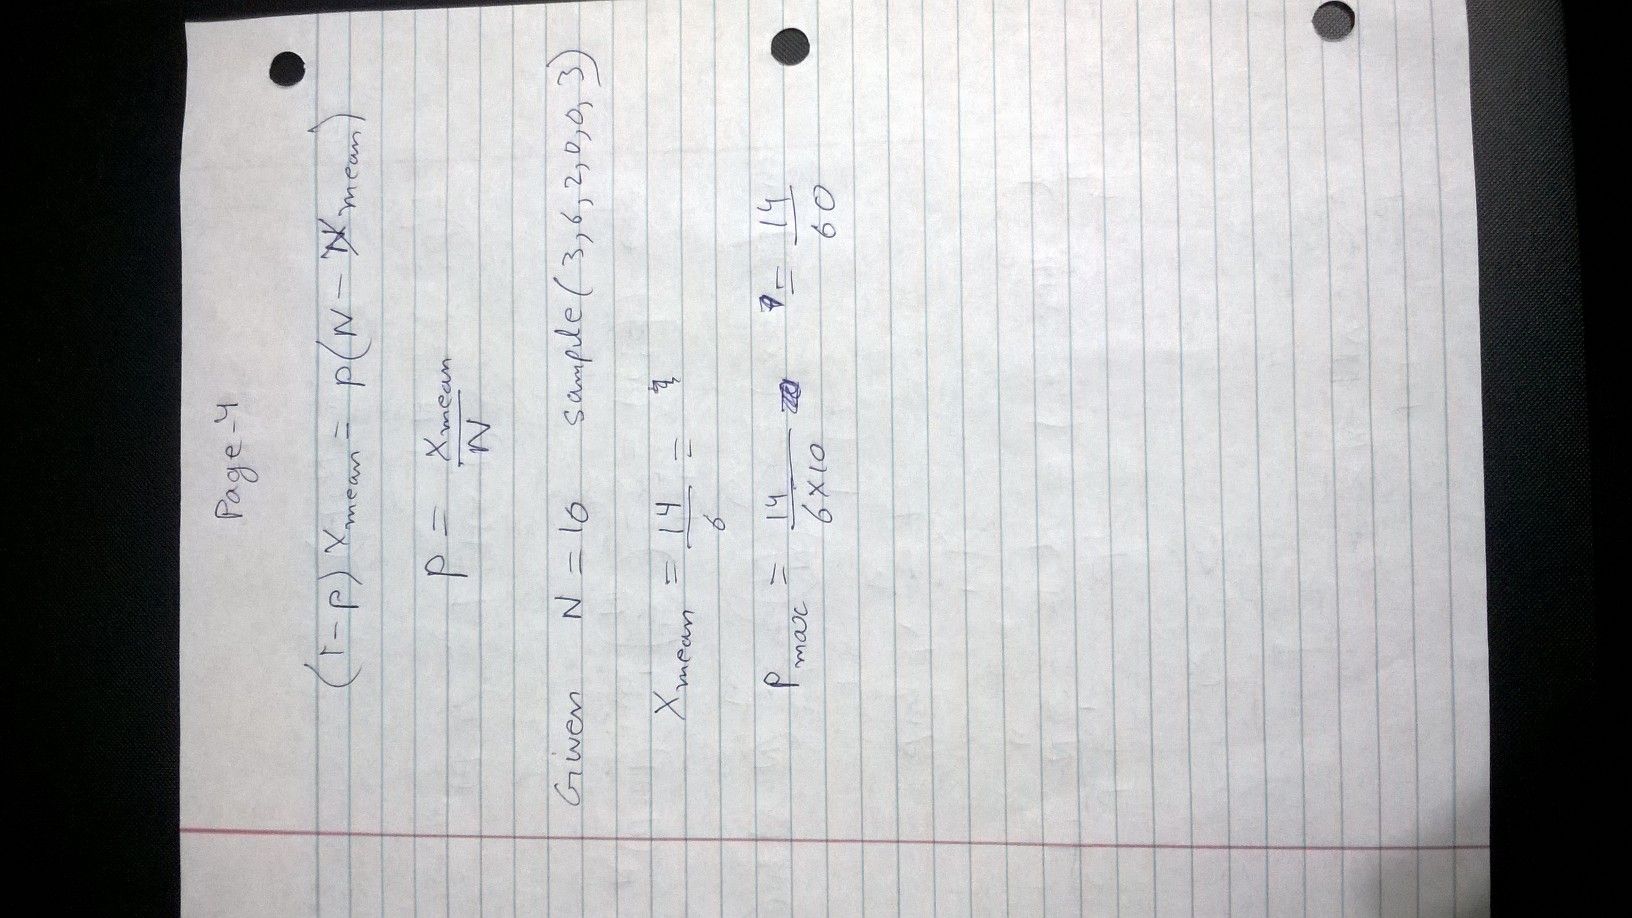 Page-4
(1-p) Xmean = p(N - Xmean)
P = Xmean
N
Given N = 10 sample(3,6,2,0,0,3)
Xmean = 14 =
6
Pmax = 14 = 14
6X10 60